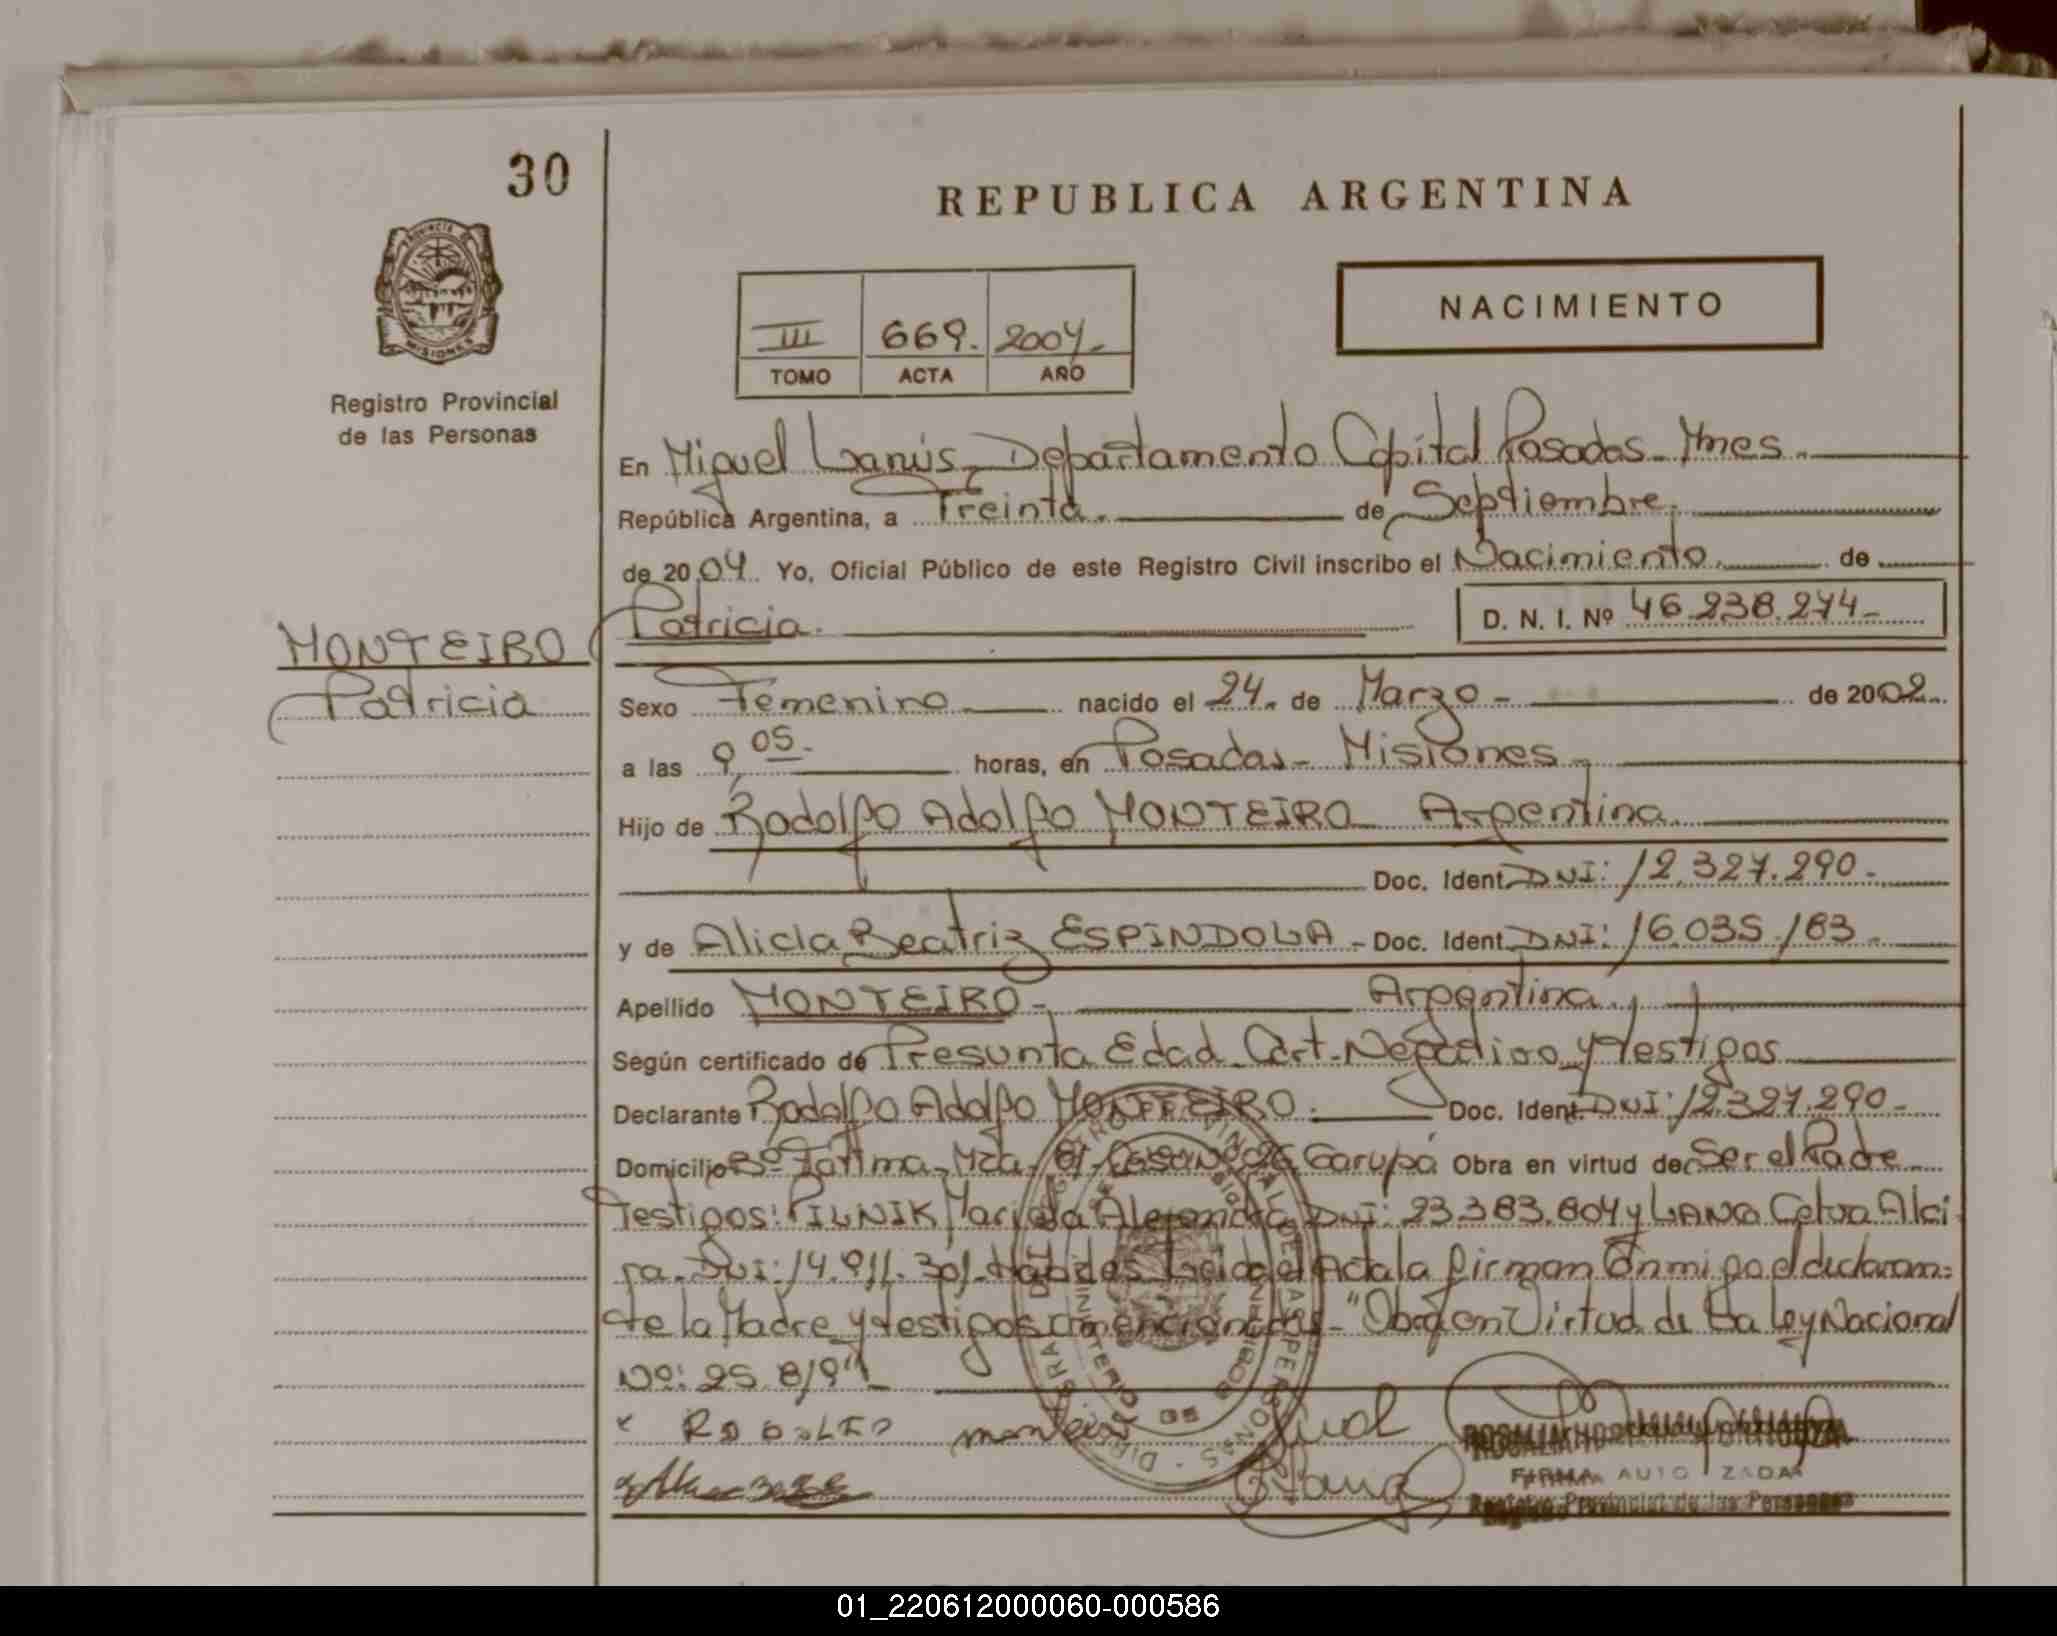 30
REPUBLICA ARGENTINA
PROVINCIA DE
MISIONES
Registro Provincial
de las Personas
III 669. 2004.
TOMO ACTA AÑO
NACIMIENTO
En Miguel Lanús, Departamento Capital Posadas - Mnes.
República Argentina, a Treinta. de Septiembre.
de 2004. Yo, Oficial Público de este Registro Civil inscribo el Nacimiento. de
Patricia. D. N. I. Nº 46.238.274-
MONTEIRO
Patricia
Sexo Femenino nacido el 24. de Marzo - de 2002.
a las 9,05. horas, en Posadas - Misiones
Hijo de Rodolfo Adolfo MONTEIRO Argentina
Doc. Ident. DNI: 12.327.290.
y de Alicia Beatriz ESPINDOLA - Doc. Ident. DNI: 16.035.183.
Apellido MONTEIRO - Argentina.
Según certificado de Presunta Edad Cert. Negativo y testigos
Declarante Rodolfo Adolfo MONTEIRO. Doc. Ident. DNI: 12.327.290-
Domicilio Bº Fátima - Mza. Casa Nº Garupá Obra en virtud de Ser el Padre
Testigos: PILNIK Mariela Alejandra DNI: 23.383.804 y Alci
ra. DNI: 14.911.301. Leída el Acta la firman Conmigo el declaran=
te la Madre y testigos "Obra en Virtud de La Ley Nacional
Nº: 25.819"
x RODOLFO monteiro
FIRMA AUTORIZADA
Registro Provincial de las Personas
01_220612000060-000586